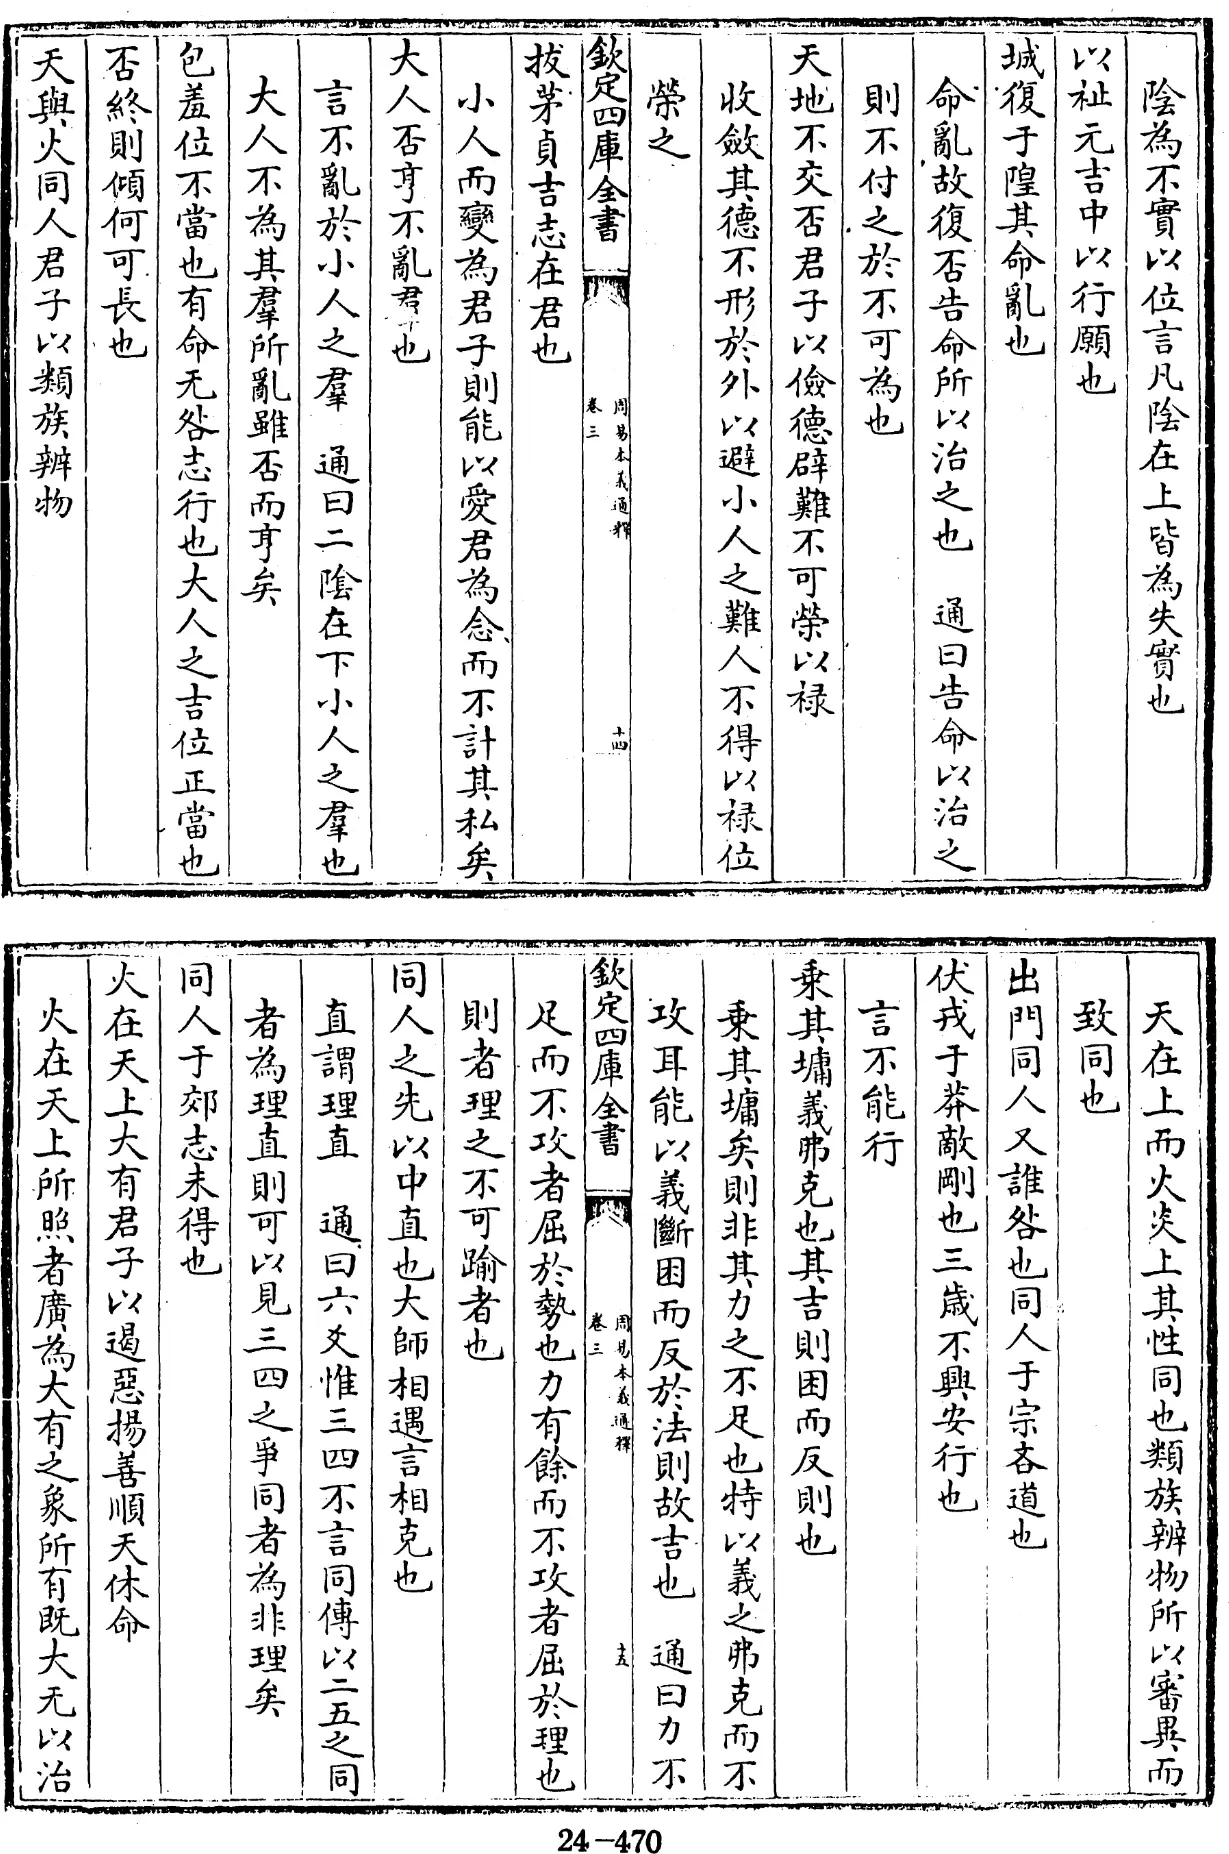 陰為不實以位言凡陰在上皆為失實也
以祉元吉中以行願也
城復于隍其命亂也
命亂故復否告命所以治之也　通曰告命以治之
則不付之於不可為也
天地不交否君子以儉德辟難不可榮以祿
收斂其德不形於外以避小人之難人不得以祿位
榮之
欽定四庫全書
周易本義通釋
卷三
十四
拔茅貞吉志在君也
小人而變為君子則能以愛君為念而不計其私矣
大人否亨不亂羣也
言不亂於小人之羣　通曰二陰在下小人之羣也
大人不為其羣所亂雖否而亨矣
包羞位不當也有命无咎志行也大人之吉位正當也
否終則傾何可長也
天與火同人君子以類族辨物
天在上而火炎上其性同也類族辨物所以審異而
致同也
出門同人又誰咎也同人于宗吝道也
伏戎于莽敵剛也三歲不興安行也
言不能行
乘其墉義弗克也其吉則困而反則也
乘其墉矣則非其力之不足也特以義之弗克而不
攻耳能以義斷困而反於法則故吉也　通曰力不
欽定四庫全書
周易本義通釋
卷三
十五
足而不攻者屈於勢也力有餘而不攻者屈於理也
則者理之不可踰者也
同人之先以中直也大師相遇言相克也
直謂理直　通曰六爻惟三四不言同傳以二五之同
者為理直則可以見三四之爭同者為非理矣
同人于郊志未得也
火在天上大有君子以遏惡揚善順天休命
火在天上所照者廣為大有之象所有既大无以治
24-470